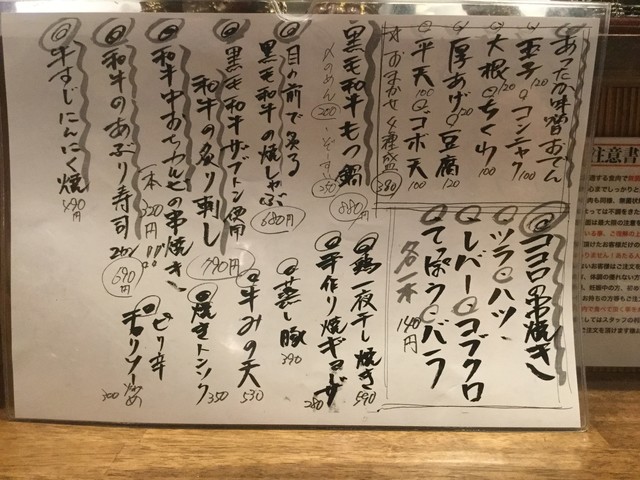 あったか味噌おでん
玉子 120 コンニャク 100
大根 120 ちくわ 100
厚あげ 120 豆腐 120
平天 100 ゴボ天 100
おまかせ4種盛 380
ココロの串焼き
ツラ ハツ
レバー コブクロ
てっぽう バラ
各一本 140円
黒毛和牛もつ鍋 880円
〆のめん 200 ぞうすい 250
目の前で炙る
黒毛和牛の焼しゃぶ 680円
黒毛和牛ザブトン使用
和牛の炙り刺し 790円
和牛中おちカルビの串焼き
一本 320円
和牛のあぶり寿司 2カン 690円
牛すじにんにく焼 490円
鶏一夜干し焼き 590
手作り焼ギョーザ 280
蒸し豚 390
牛みの天 530
焼きトンソク 350
ピリ辛
チョリソー炒め 300
注意書